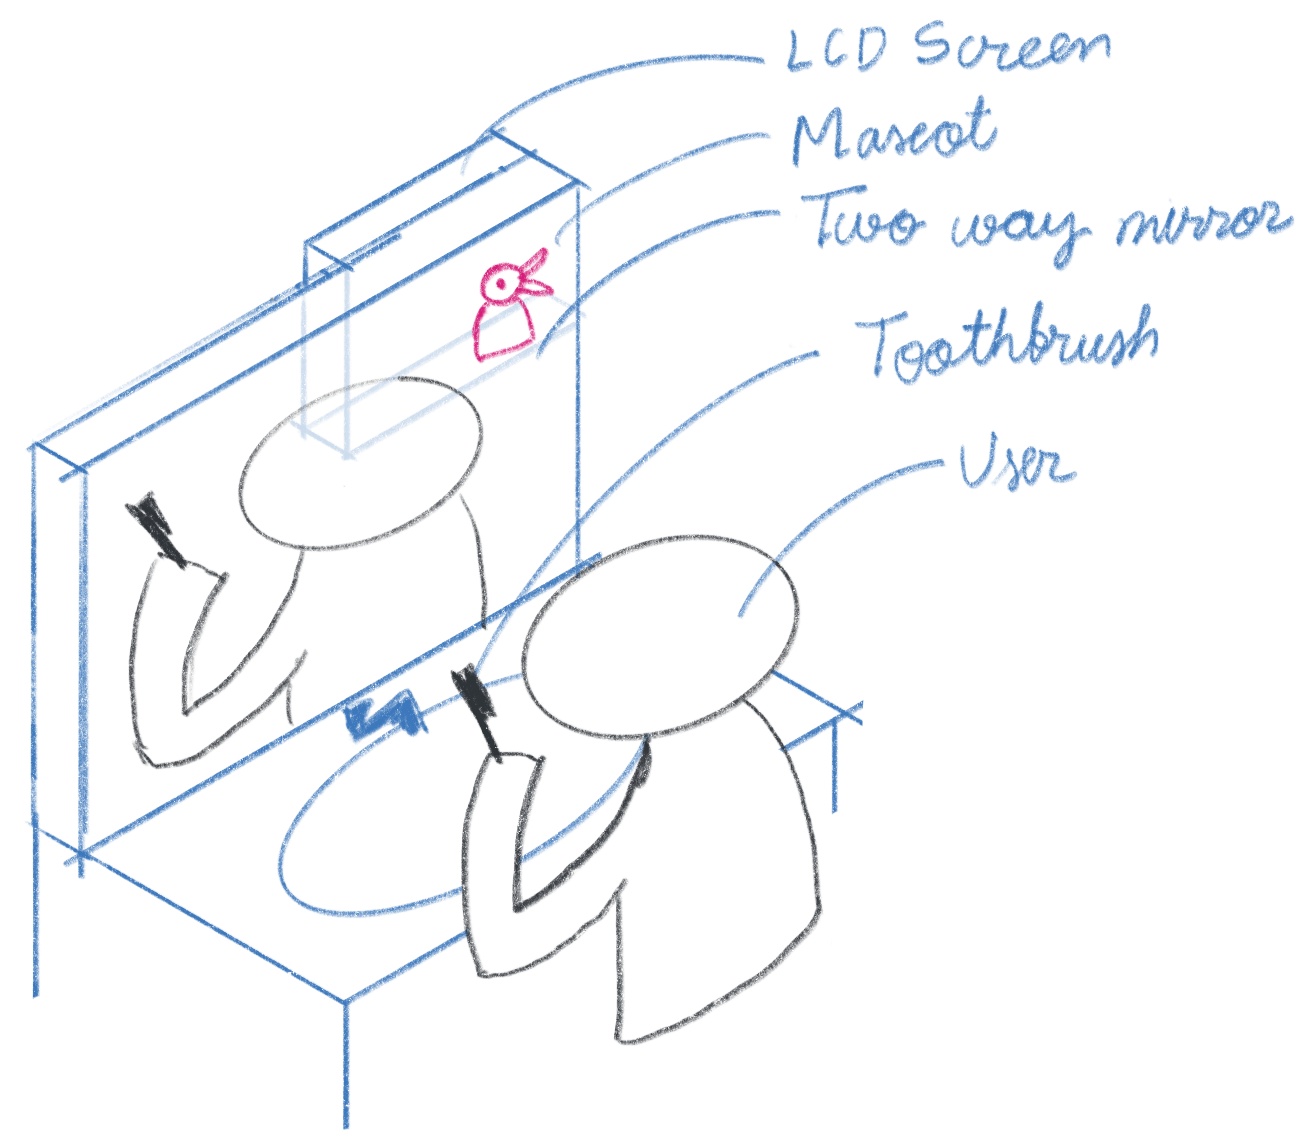 LCD Screen
Mascot
Two way mirror
Toothbrush
User